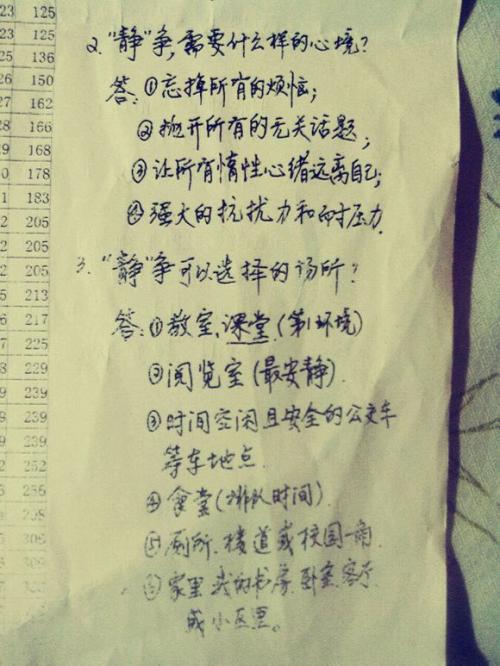 23 125
23 125
25 136
26 150
27 162
28 166
29 168
30 178
1 183
2 205
2 205
2 205
5 213
6 217
7 225
8 239
9 239
9 239
2 252
6 256
298
306
306
2. “静”争,需要什么样的心境?
答:①忘掉所有的烦恼;
②抛开所有的无关话题;
③让所有惰性心绪远离自己;
④强大的抗扰力和耐压力.
3. “静”争可以选择的场所?
答:①教室、课堂(第1环境)
②阅览室(最安静).
③时间空闲且安全的公交车
等车地点.
④食堂(排队时间).
⑤厕所、楼道或校园一角.
⑥家里 我的书房、卧室、客厅
或小区里。